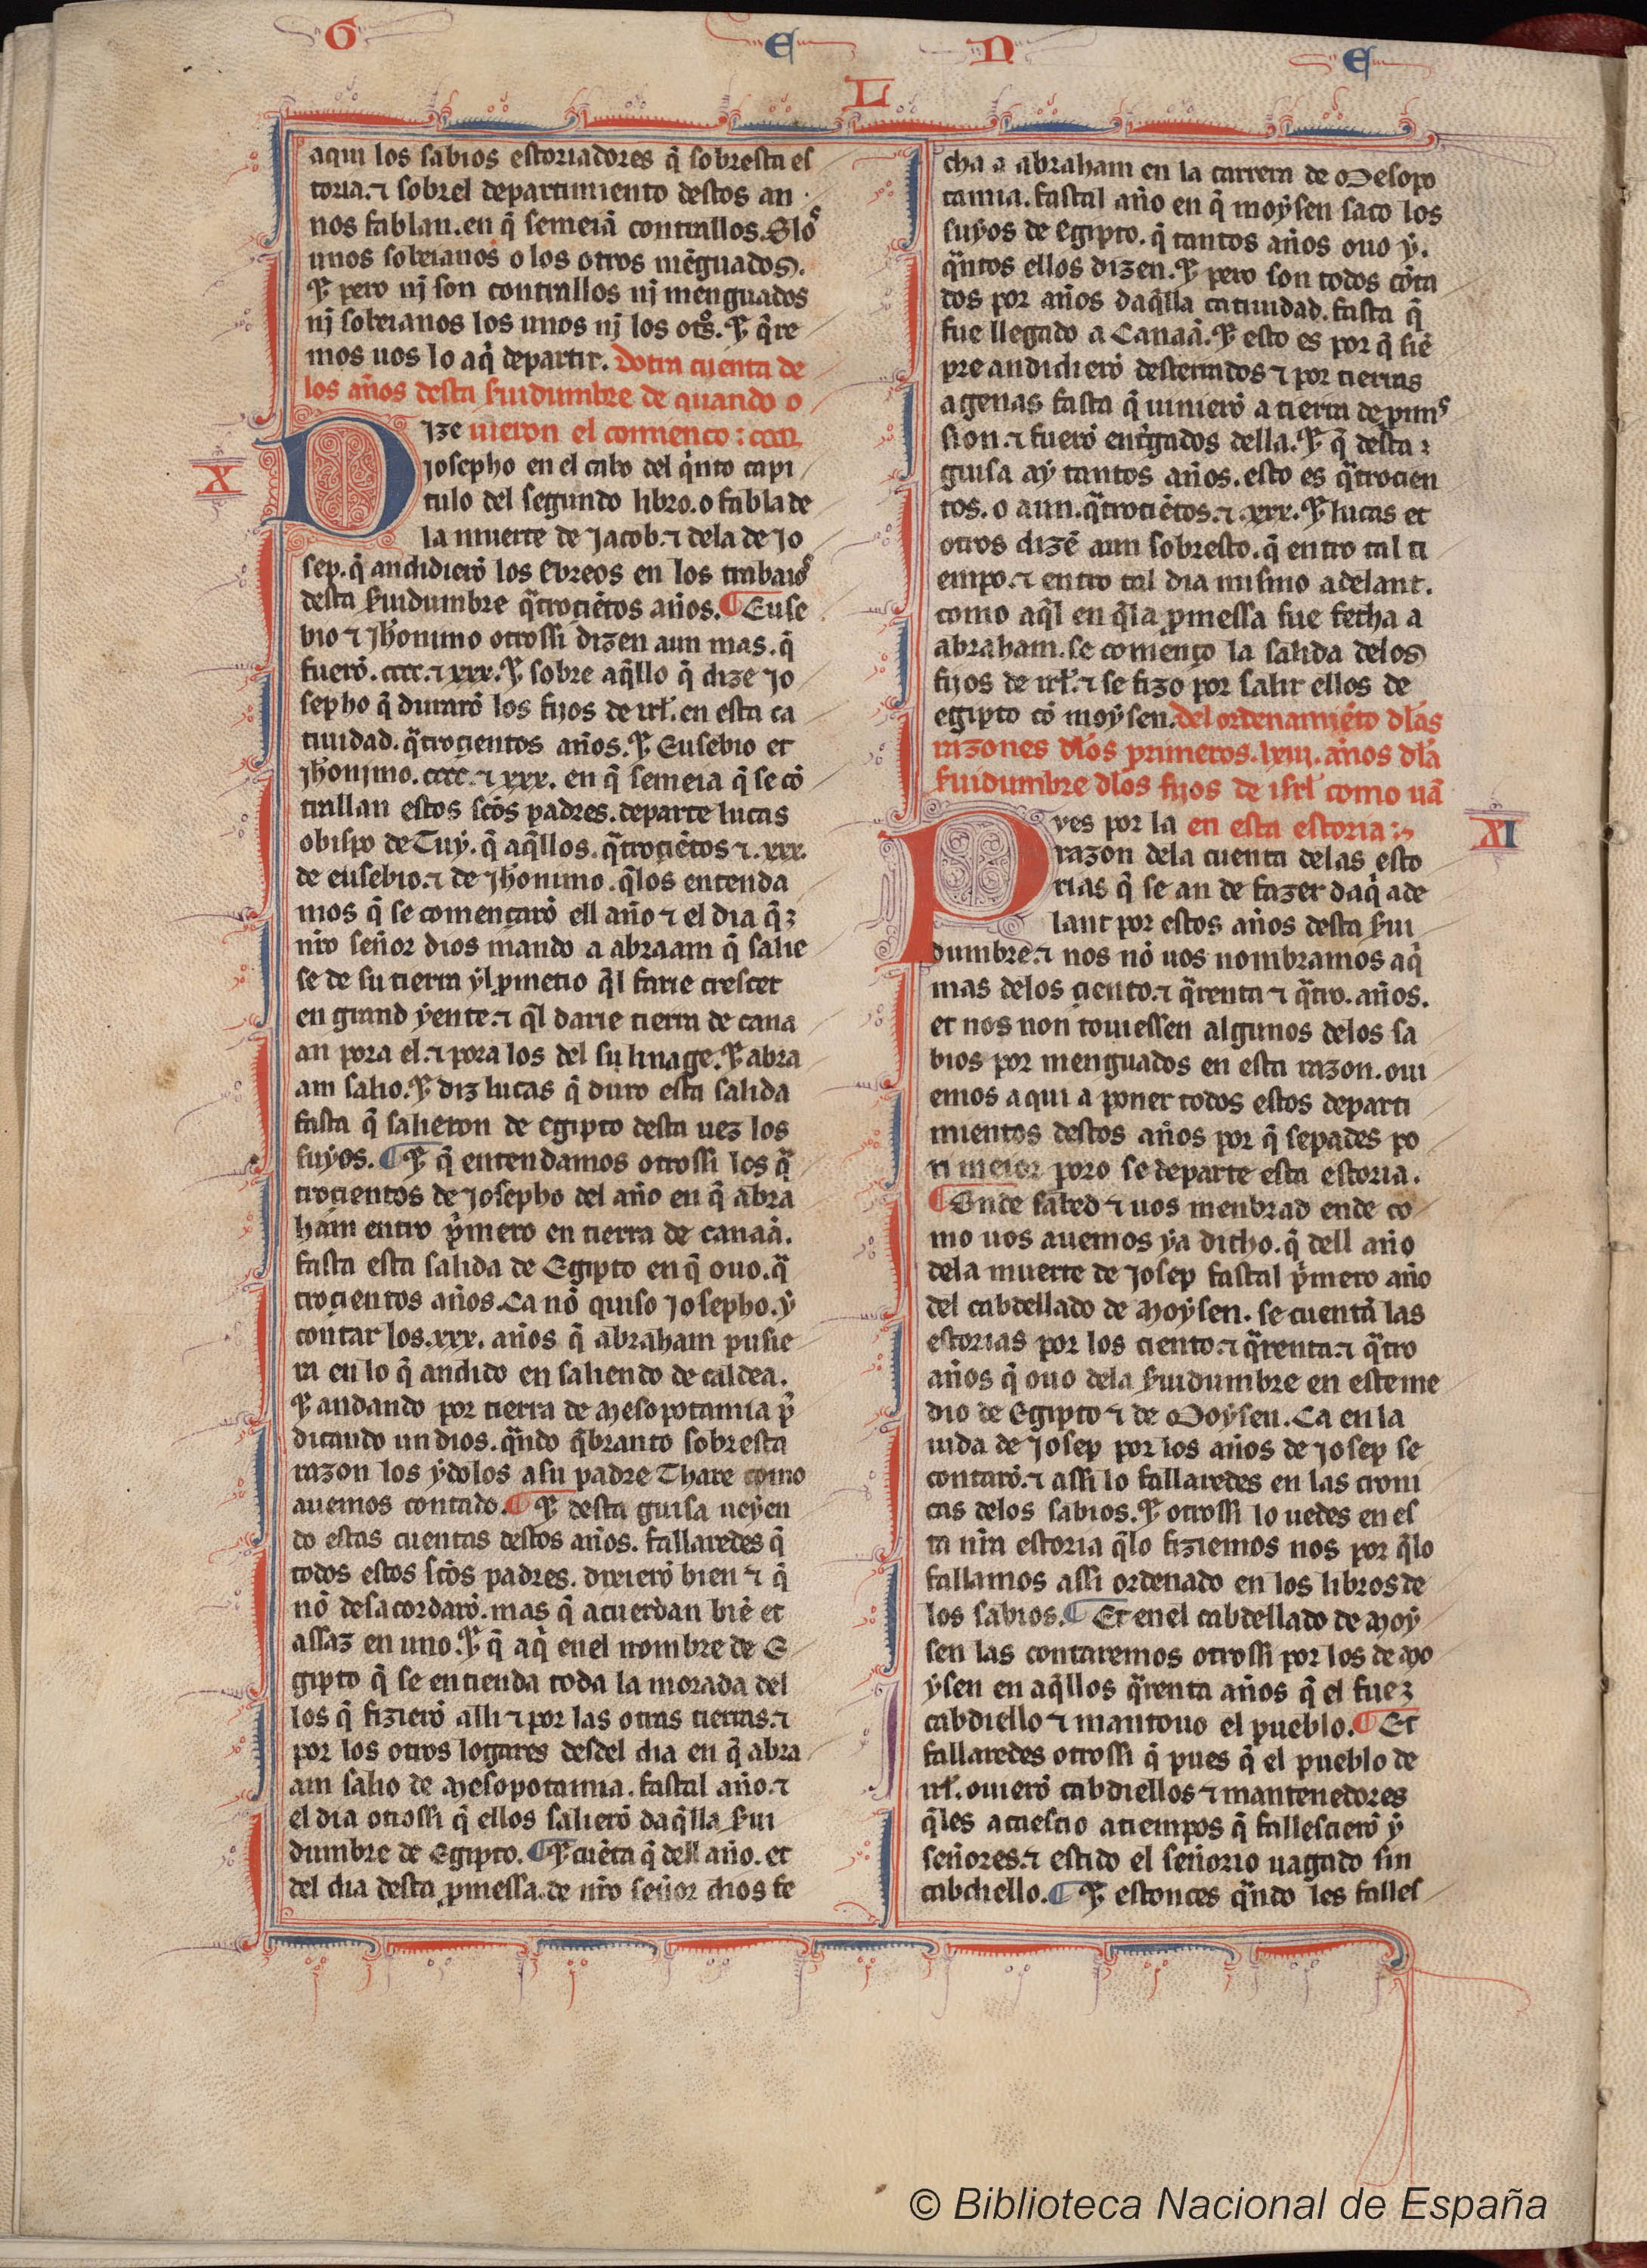 G E N E
L
aqui los sabios estoriadores q̃ sobresta es
toria. ⁊ sobrel departimiento destos an
nos fablan. en q̃ semeiã contrallos. E los
unos sobeianos o los otros mẽguados.
E pero nj son contrallos nj menguados
nj sobeianos los unos nj los otr̃os. E q̃re
mos uos lo aq̃ departir. Dotra cuenta de
los años desta ẜuidumbre de quando o
X
Dize uieron el comienço : cccc.
Josepho en el cabo del q̃nto capi
tulo del segundo libro. o fabla de
la muerte de Jacob. ⁊ dela de Jo
sep. q̃ andidierõ los Ebreos en los trabaios
desta ẜuidumbre q̃trociẽtos años. ¶ Euse
bio ⁊ Jh̃onimo otrossi dizen aun mas. q̃
fuerõ. cccc. ⁊ xxx. E sobre aq̃llo q̃ dize Jo
sepho q̃ durarõ los fijos de irl̃. en esta ca
tiuidad. q̃trocientos años. E Eusebio et
Jh̃onjmo. cccc. ⁊ xxx. en q̃ semeia q̃ se cõ
trallan estos sc̃os padres. departe lucas
obispo de Tuy. q̃ aq̃llos. q̃trociẽtos ⁊. xxx.
de eusebio. ⁊ de Jh̃onimo. q̃los entenda
mos q̃ se comencarõ ell año ⁊ el dia q̃
nr̃o señor dios mando a abraam q̃ salie
se de su tierra ẏl p̃metio q̃l farie crescer
en grand ẏente. ⁊ q̃l darie tierra de cana
an pora el. ⁊ pora los del su linage. E abra
am salio. E diz lucas q̃ duro esta salida
fasta q̃ salieron de egipto desta uez los
suẏos. ¶ E q̃ entendamos otrossi los q̃
trocientos de Josepho del año en q̃ abra
ham entro p̃mero en tierra de canaã.
fasta esta salida de Egipto en q̃ ouo. q̃
trocientos años. Ca nõ quiso Josepho. ẏ
contar los. xxx. años q̃ abraham pusie
ra en lo q̃ andido en saliendo de caldea.
E andando por tierra de mesopotamia p̃
dicando un dios. q̃ndo q̃branto sobresta
razon los ẏdolos asu padre Thare como
auemos contado. ¶ E desta guisa ueẏen
do estas cuentas destos años. fallaredes q̃
todos estos sc̃os padres. dixierõ bien ⁊ q̃
nõ desacordarõ. mas q̃ acuerdan biẽ et
assaz en uno. E q̃ aq̃ enel nombre de E
gipto q̃ se entienda toda la morada del
los q̃ fizierõ alli ⁊ por las otras tierras. ⁊
por los otros logares desdel dia en q̃ abra
am salio de mesopotamia. fastal año. ⁊
el dia otrossi q̃ ellos salierõ daq̃lla ẜui
dumbre de Egipto. ¶ E cuẽta q̃ dell año. et
del dia desta p̃messa. de nr̃o señor dios fe
cha a abraham en la carrera de Mesopo
tamia. fastal año en q̃ moẏsen saco los
suẏos de Egipto. q̃ tantos años ouo ẏ.
q̃ntos ellos dizen. E pero son todos cõta
dos por años daq̃lla catiuidad. fasta q̃
fue llegado a Canaã. E esto es por q̃ siẽ
pre andidierõ desterrados ⁊ por tierras
agenas fasta q̃ uinierõ a tierra de pmis
sion. ⁊ fuerõ entgados della. E q̃ desta
guisa aẏ tantos años. esto es q̃trocien
tos. o aun. q̃trociẽtos. ⁊. xxx. E lucas et
otros dizẽ aun sobresto. q̃ entro tal ti
empo. ⁊ entro tal dia mismo adelant.
como aq̃l en q̃la p̃messa fue fecha a
abraham. se començo la salida delos
fijos de irl̃. ⁊ se fizo por salir ellos de
egipto cõ moẏsen. del ordenamiẽto dlas
razones dlos primeros. lxiii. años dla
ẜuidumbre dlos fijos de isrl̃ como uã
XI
Pves por la en esta estoria :
razon dela cuenta delas esto
rias q̃ se an de fazer daq̃ ade
lant por estos años desta ẜui
dumbre. ⁊ nos nõ uos nombramos aq̃
mas delos ciento. ⁊ q̃renta ⁊ q̃tro. años.
et nos non touiessen algunos delos sa
bios por menguados en esta razon. oui
emos aqui a poner todos estos departi
mientos destos años por q̃ sepades po
r̃i meior poro se departe esta estoria.
¶ Onde sabed ⁊ uos menbrad ende co
mo uos auemos ẏa dicho. q̃ dell año
dela muerte de Josep fastal p̃mero año
del cabdellado de moẏsen. se cuentã las
estorias por los ciento. ⁊ q̃renta. ⁊ q̃tro
años q̃ ouo dela ẜuidumbre en esteme
dio de Egipto ⁊ de Moẏsen. Ca en la
uida de Josep por los años de Josep se
contarõ. ⁊ assi lo fallaredes en las croni
cas delos sabios. E otrossi lo uedes en es
ta nr̃a estoria q̃lo fiziemos nos por q̃lo
fallamos assi ordenado en los libros de
los sabios. ¶ Et enel cabdellado de moẏ
sen las contaremos otrossi por los de mo
ẏsen en aq̃llos q̃renta años q̃ el fue
cabdiello ⁊ mantouo el pueblo. ¶ Et
fallaredes otrossi q̃ pues q̃ el pueblo de
irl̃. ouierõ cabdiellos ⁊ mantenedores
q̃les acaescio atiempos q̃ fallescierõ ẏ
señores. ⁊ estido el señorio uagado sin
cabdiello. ¶ E estonces q̃ndo les falles
© Biblioteca Nacional de España